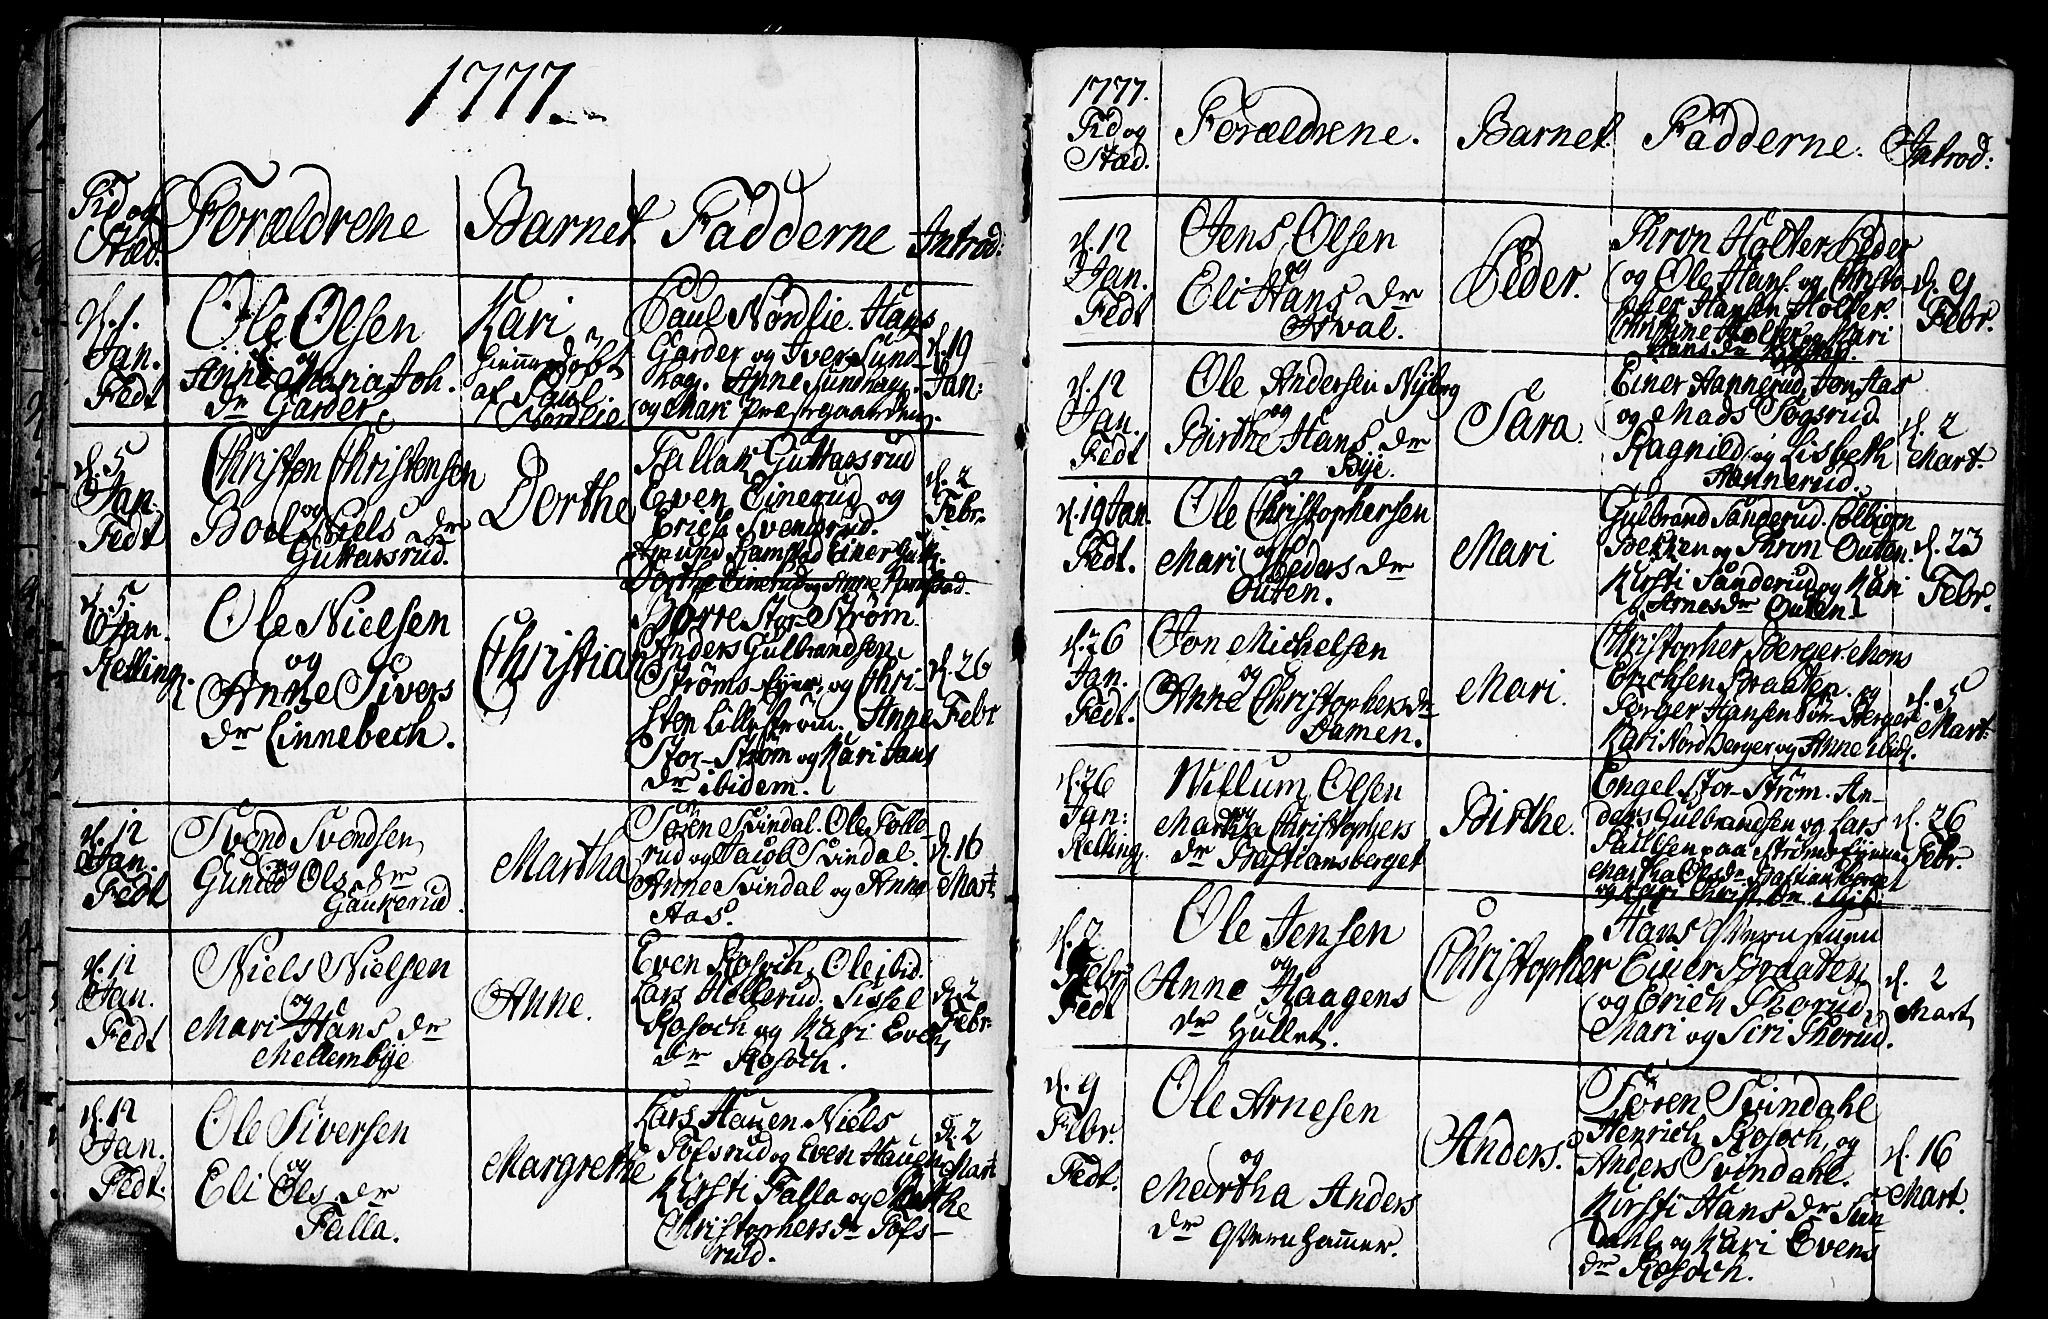 1777.
Tid og
Stæd.
Forældrene
Barnet.
Fadderne
Introd:
d. 1.
Jan.
Fedt
Ole Olsen
og
Anne Maria Joh.
dr Garder.
Kari
hiemmedøbt
af Povel
Nordlie
Paul Nordlie. Hans
Garder og Iver Sund-
hag. Anne Sundhag.
og Mari Præstegaarden.
d. 19
Jan:
d. 5
Jan.
Fedt
Christen Christensen
og
Boel Niels dr
Guttersrud.
Dorthe
Tallak Guttersrud
Even Einerud og
Erich Svensrud.
Amund Ramstad Einer Gutt.
Dorthe Einerud og Anne Ramstad.
d. 2
Febr.
d. 5.
Jan.
Kelling.
Ole Nielsen
og
Anne Sivers
dr Linnebech.
Christian
Børre Stor-Strøm.
Anders Gulbrandsen
Strøms-Eyer, og Chri-
sten Lillestrøm. Anne
Stor-Strøm og Kari Jans
dr ibidem.
d. 26
Febr
d. 12
Jan.
Fedt
Svend Svendsen
og
Gunild Ols dr
Gaukerud.
Martha
Søren Svindal. Ole Tolle-
rud og Jacob Svindal.
Anne Svindal og Anne
Aas.
d. 16
Mart.
d. 12
Jan.
Fedt
Niels Nielsen
og
Mari Hans dr
Mellembye
Anne.
Even Rosoch, Ole ibid.
Lars Hellerud. Sissel
Rosoch og Kari Evens
dr Rosoch.
d. 2
Febr.
d. 12
Jan.
Fedt.
Ole Siversen
og
Eli Ols dr
Falla.
Margrethe
Lars Hauen Niels
Tofsrud og Even Hauen
Kirsti Falla og Marthe
Christophers dr Tofs-
rud.
d. 2
Mart
1777.
Tid og
Stæd.
Forældrene.
Barnet.
Fadderne.
Introd:
d. 12
Jan.
Fedt
Jens Olsen
og
Eli Hans dr
Hval.
Peder.
Thron Holter Peder
og Ole Hans. og Christo-
pher Hansen Holter.
Christine Holter og Kari
Hans dr
d. 9
Febr.
d. 12
Jan.
Fedt
Ole Andersen Nyborg
og
Birthe Hans dr
Bye.
Sara.
Einer Hannerud, Jon Aas
og Mads Sogsrud.
Ragnild og Lisbeth
Hannerud.
d. 2
Mart.
d. 19 Jan.
Fedt.
Ole Christophersen
og
Mari Peders dr
Outen.
Mari
Gulbrand Sanderud. Colbjørn
Bekken og Thron Outen.
Kirsti Sanderud og Kari
Arnes dr Outen.
d. 23
Febr.
d. 26
Jan.
Fedt.
Jon Michelsen
og
Anne Christophers dr
Damen.
Mari.
Christopher Berger. Mons
Erichsen Braaten. og
Børger Hansen Sør-Berger
Kari Nord Berger og Anne ibid.
d. 5
Mart:
d. 26
Jan:
Kelling.
Willum Olsen
og
Martha Christophers
dr Bastiansberget
Birthe.
Engel Stor-Strøm. An-
ders Gulbrandsen og Lars
Paulsen paa Strøms-Eyerne
Martha Ols dr Bastiansberget
og Kari Christ. dr ibid.
d. 26
Febr.
d. 2
Febr.
Fedt
Ole Jensen
og
Anne Haagens
dr Hullet.
Christopher
Hans Qvernstuen
Einer Braaten
og Erich Thorud,
Mari og Siri Thorud.
d. 2
Mart
d. 9
Febr.
Fedt.
Ole Arnesen
og
Martha Anders
dr Qvernhammer.
Anders.
Søren Svindahl
Henrich Rosoch, og
Anders Svindahl.
Kirsti Hans dr Svin
dahl og Kari Evens
dr Rosoch.
d. 16
Mart.